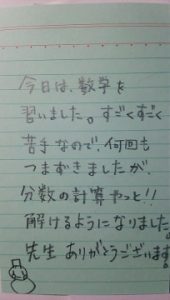 今日は、数学を
習いました。すごくすごく
苦手なので、何回も
つまずきましたが、
分数の計算やっと!!
解けるようになりました。
先生ありがとうございます。